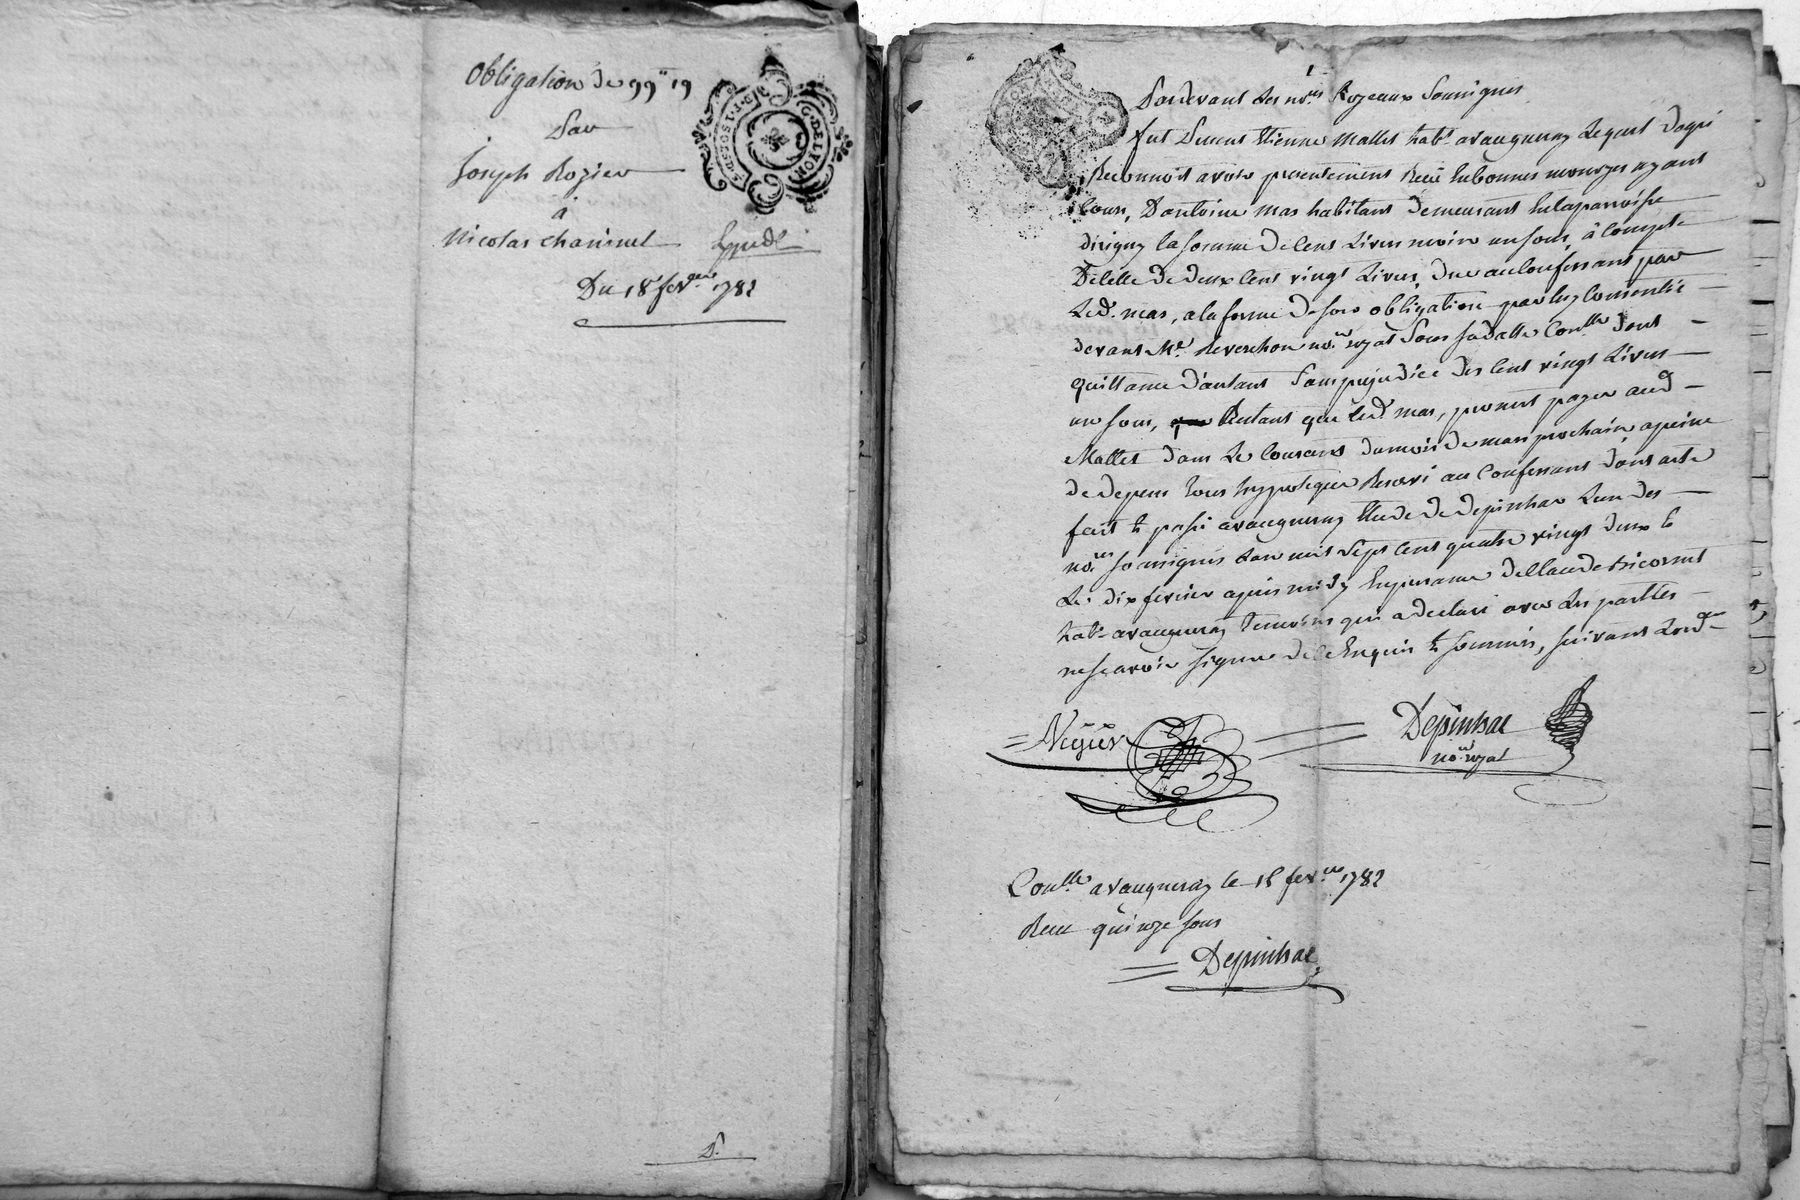 Obligation de 99ᵗᵗ 19
Par
Joseph Rozier
à
Nicolas chaninel Expedié
Du 18 fevrier 1782
G. DE LYON
Pardevant les nores Royeaux soussignes
fut present Etienne mallet habt. avaugneray lequel degré
Reconnoit avoir presentement Receu en bonnes monoyes ayant
Cours, D'antoine mas habitant demeurant en la parroisse
divigny la somme de Cent Livres moins un sous, à Compte
de Celle de deux Cent vingt Livres, due au Confessant par
Led. mas, a la forme de son obligation par luy Consentie
devant Me. Reverchon nore. royal sous sa datte Conllée dont
quittance d'autant sans prejudice des Cent vingt Livres
un sous, Restant que led. mas, promet payer aud.
Mallet dans le Courant du mois de mars prochain, a peine
de depens sous hypoteque Reservé au Confessant dont acte
fait et passé avaugneray Etude de depinhac L'un des
nores soussignés L'an mil sept Cent quatre vingt deux et
Le dix fevrier après midy En presence de Claude Bicornet
habt. avaugneray temoins qui a declaré avec les partties
ne scavoir signer de ce Enquis et sommés, suivant L'ordce
Depinhac
nore. royal
Conllé avaugneray le 18 fevrier 1782
Receu quinze sous
Depinhac